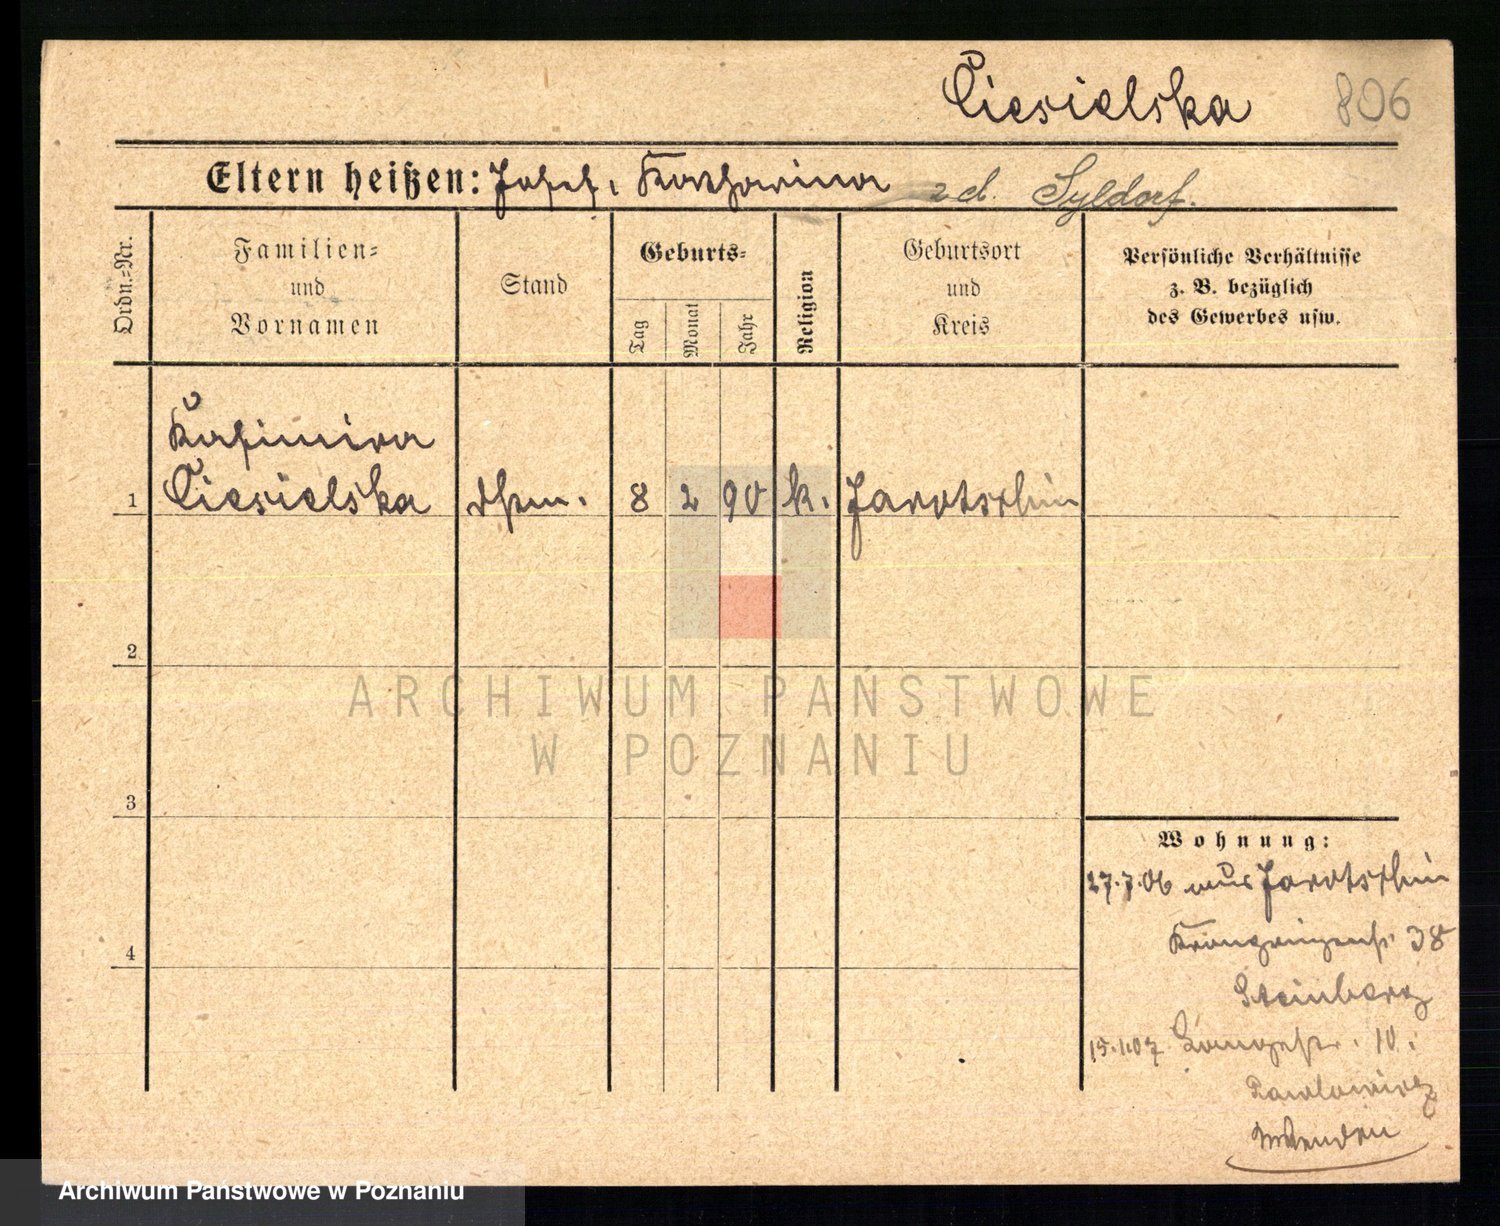 Ciesielska 806
Eltern heißen: Josef, Katharina zd. Syldorf.
Ordn.-Nr.
Familien- und Vornamen
Stand
Geburts-
Tag
Monat
Jahr
Religion
Geburtsort und Kreis
Persönliche Verhältnisse
z. B. bezüglich
des Gewerbes usw.
Kasimira
1 Ciesielska 8 2 90 k. Jarotschin
2
3
4
Wohnung:
27.7.06 aus Jarotschin
38
Steinberg
15.1.07 Langestr. 10.
Pawlowicz
ARCHIWUM PAŃSTWOWE
W POZNANIU
Archiwum Państwowe w Poznaniu